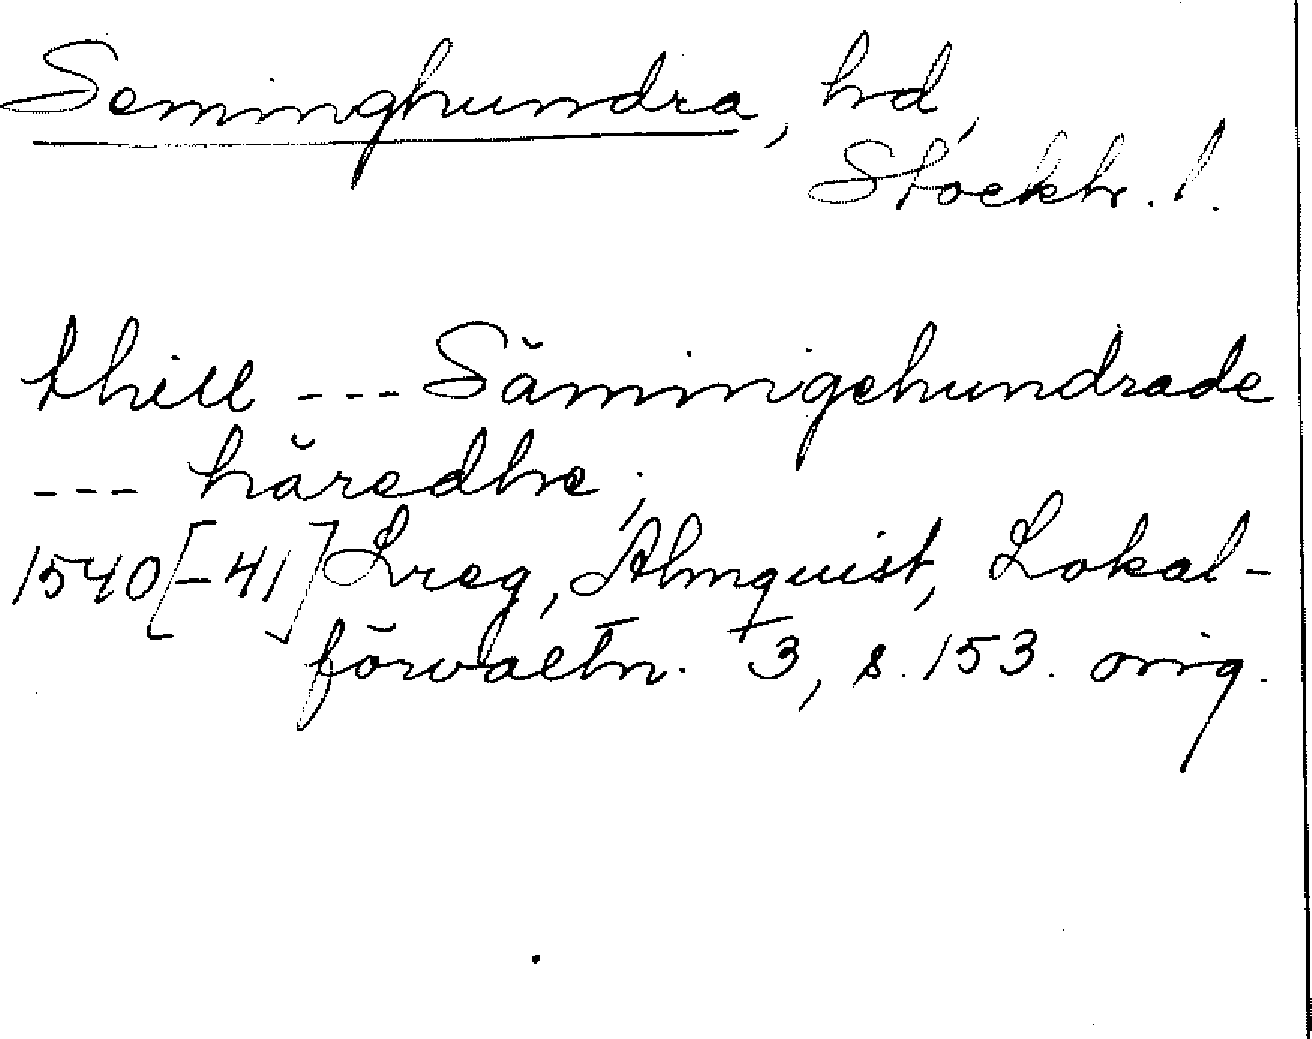 Seminghundra, hd,
Stockh. l.
thill --- Sämingehundrade
--- häredhe;
1540[-41] Lreg, Almquist, Lokal-
förvaltn. 3, s. 153. orig.